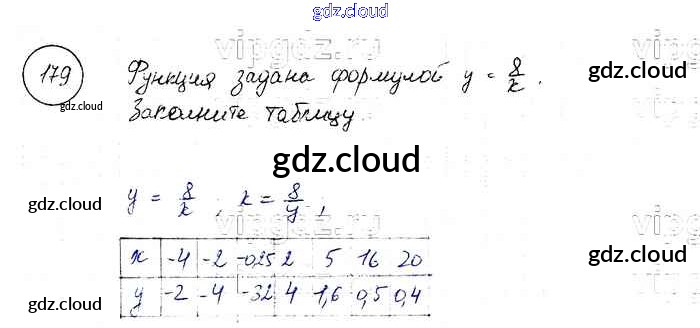 gdz.cloud
vipgdz.ru
179 Функция задана формулой y = 8/x.
gdz.cloud
gdz.cloud
Заполните таблицу.
gdz.cloud
y = 8/x ; x = 8/y ;
gdz.cloud
vipgdz.ru
x -4 -2 -0,25 2 5 16 20
y -2 -4 -32 4 1,6 0,5 0,4
gdz.cloud
gdz.cloud